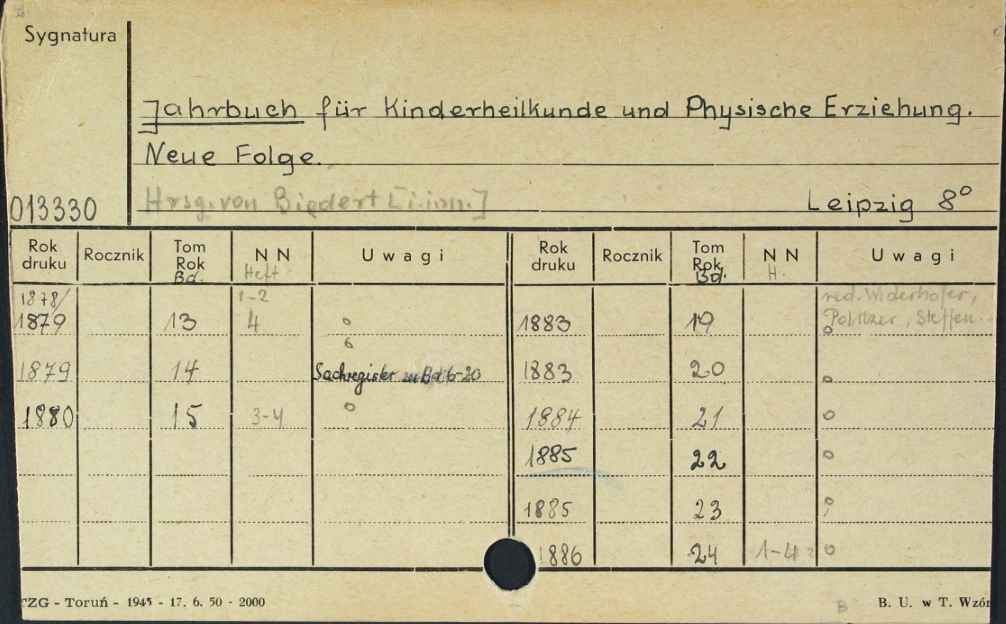 Sygnatura
Jahrbuch für Kinderheilkunde und Physische Erziehung.
Neue Folge.
013330
Hrsg. von Biedert [i inn.]
Leipzig 8°
Rok druku Rocznik Tom Rok Bd. NN Heft Uwagi
1878/ 1-2
1879 13 4 o
6
1879 14 Sachregister zu Bd. 6-20
1880 15 3-4 o
Rok druku Rocznik Tom Rok Bd. NN H. Uwagi
red. Widerhofer,
1883 19 Politzer, Steffen.. o
1883 20 o
1884 21 o
1885 22 o
1885 23 o
1886 24 1-4 o
TZG - Toruń - 1945 - 17. 6. 50 - 2000
B
B. U. w T. Wzór